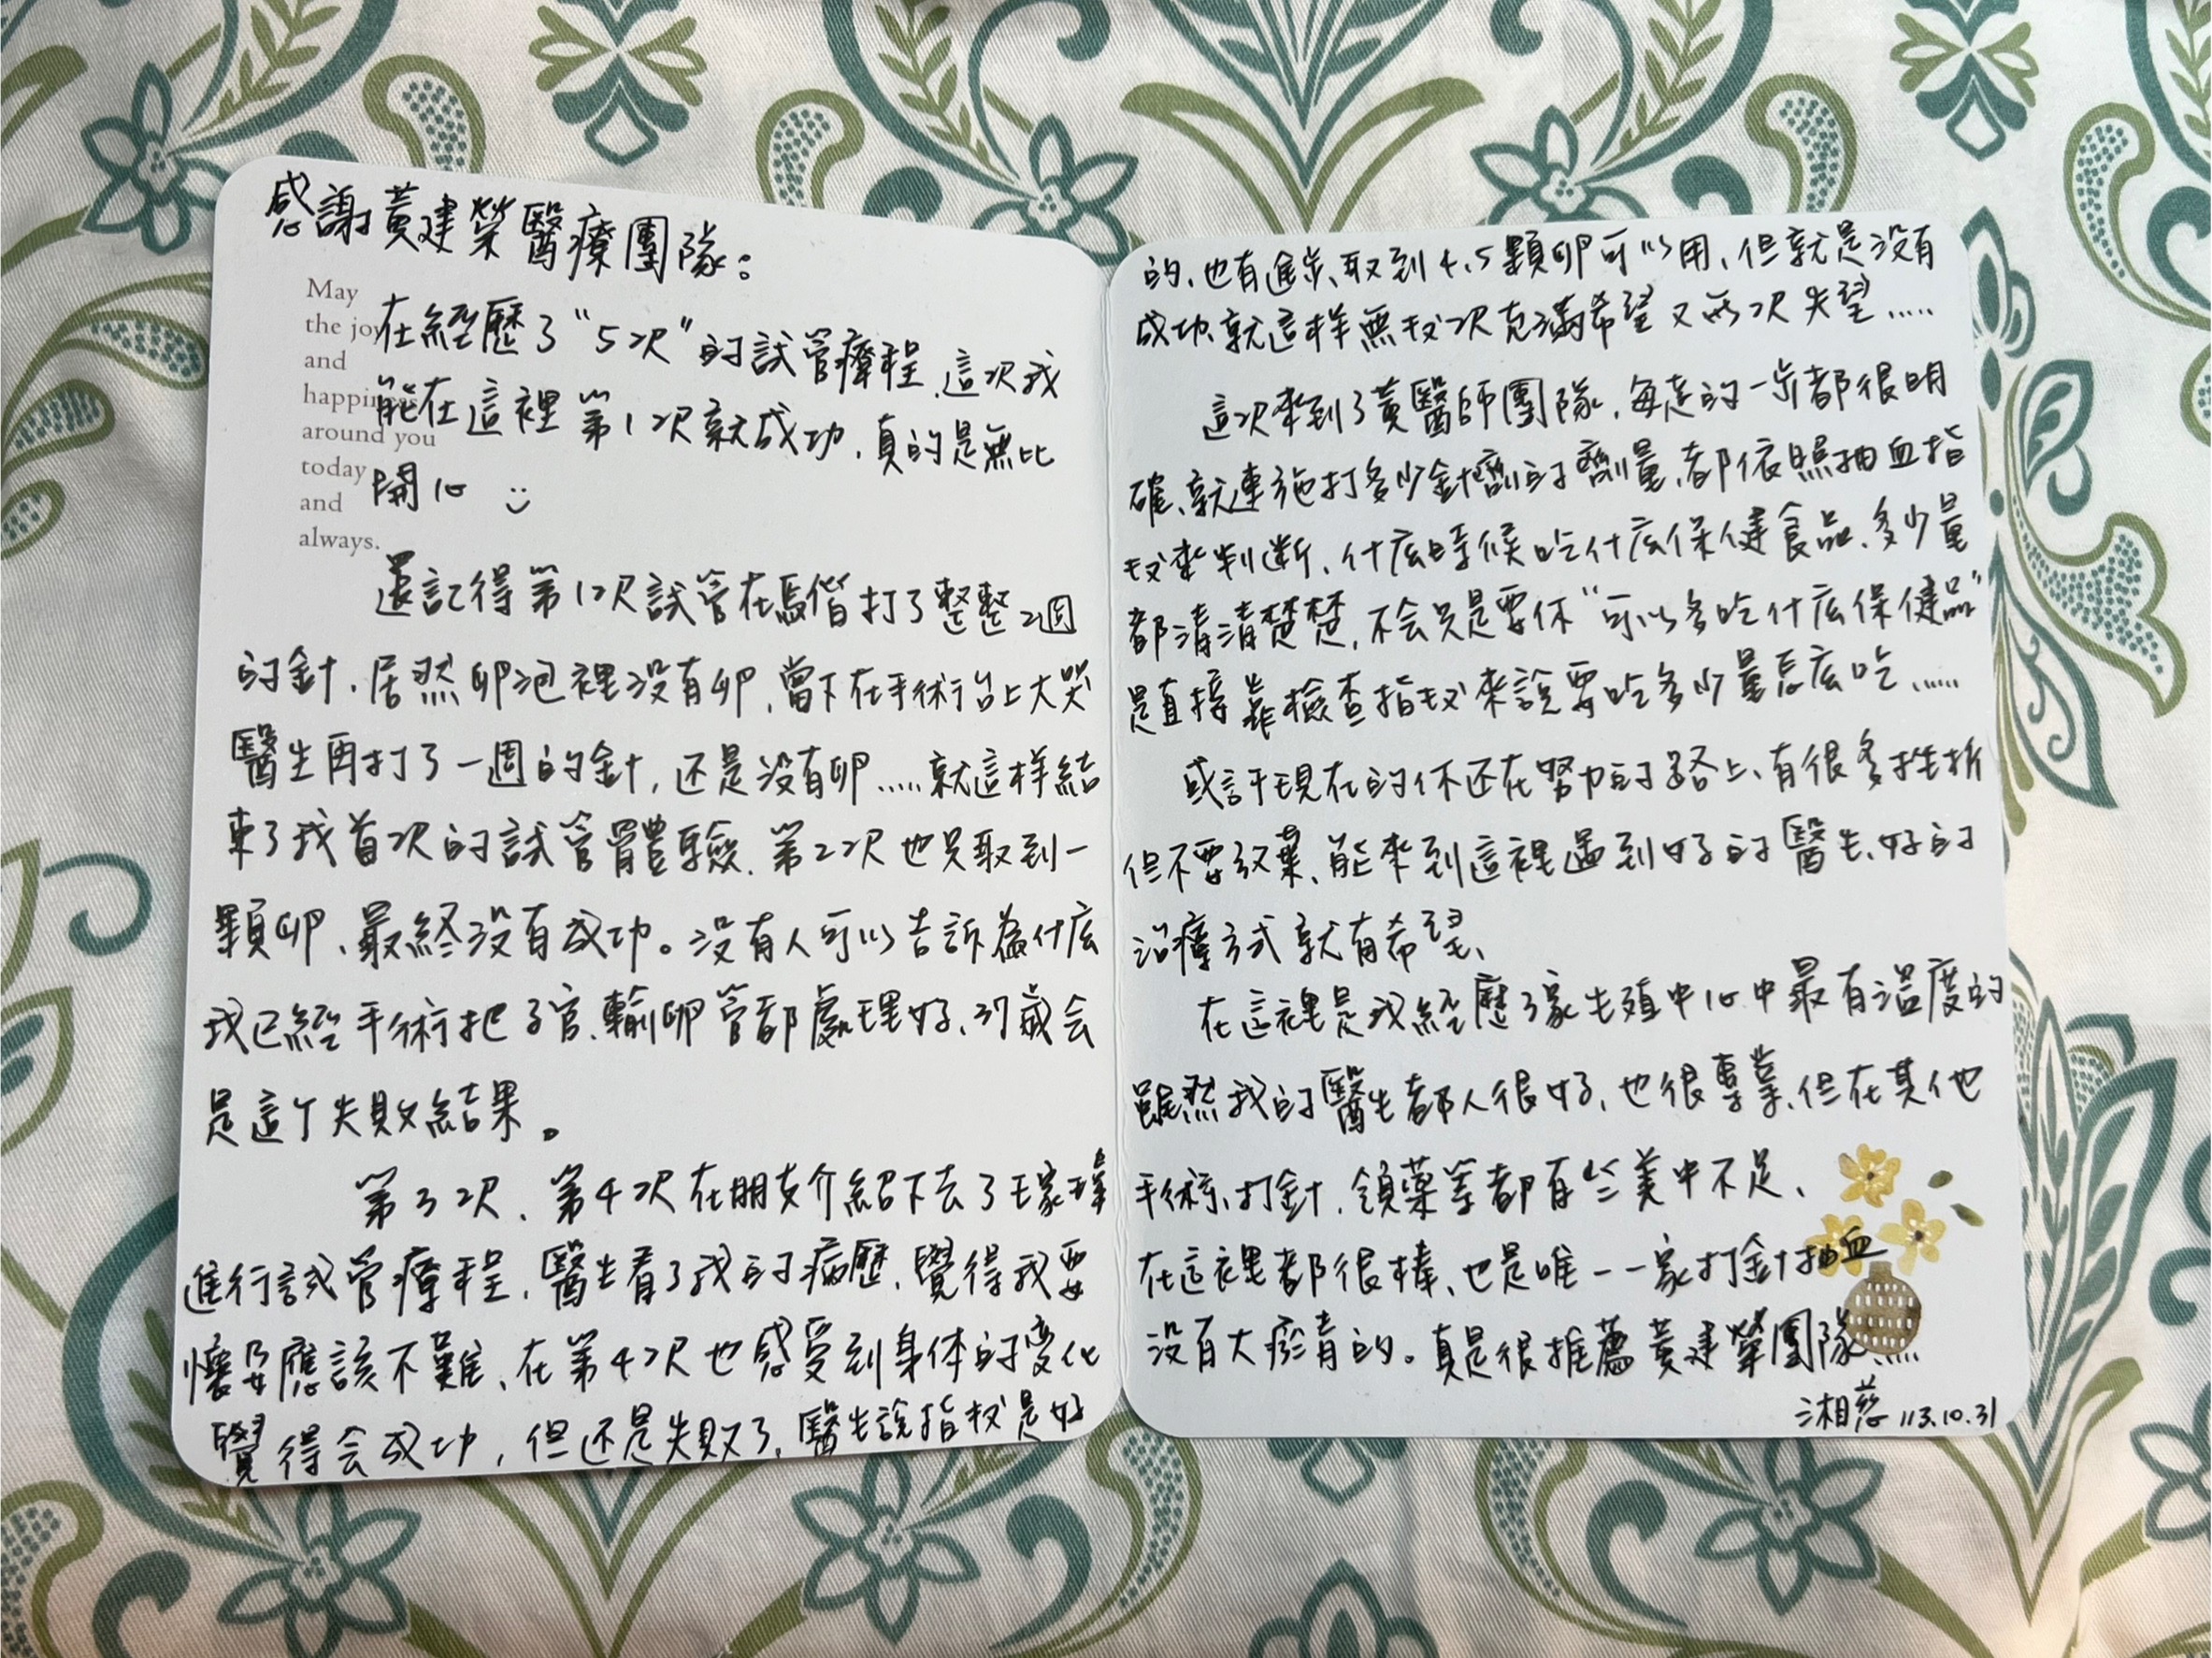 感謝黃建榮醫療團隊：
May
the joy
and
happiness
around you
today
and
always.
在經歷了“5次”的試管療程、這次我
能在這裡第1次就成功，真的是無比
開心 :)
還記得第1次試管在馬偕打了整整2週
的針，居然卵泡裡没有卵，當下在手術台上大哭
醫生再打了一週的針，还是没有卵……就這样結
束了我首次的試管體驗、第2次也只取到一
顆卵、最終没有成功。没有人可以告訴為什庅
我已經手術把子宮、輸卵管都處理好、37歲会
是這个失敗結果。
第3次、第4次在朋友介紹下去了
進行試管療程，醫生看了我的病歷，覺得我要
懷孕應該不難、在第4次也感受到身体的变化
覺得会成功，但还是失敗了，醫生說指权是好
的、也有進步、取到4、5顆卵可以用、但就是没有
成功、就這样無权次充滿希望又兩次失望……
這次來到了黃醫師團隊，每走的一步都很明
確、就連施打多少針劑的劑量、都依照抽血指
权來判断、什庅時候吃什庅保健食品、多少量
都清清楚楚，不会只是要你“可以多吃什庅保健品”
是直接靠檢查指权來說要吃多少量怎庅吃……
或許現在的你还在努力的路上、有很多挫折
但不要放棄、能來到這裡遇到好的醫生、好的
治療方式就有希望、
在這裡是我經歷3家生殖中心中最有溫度的
雖然我的醫生都人很好，也很專業、但在其他
手術、打針，領藥等都有些美中不足、
在這裡都很棒、也是唯一一家打針抽血
没有大瘀青的。真是很推薦黃建榮團隊……
湘慈 113.10.31